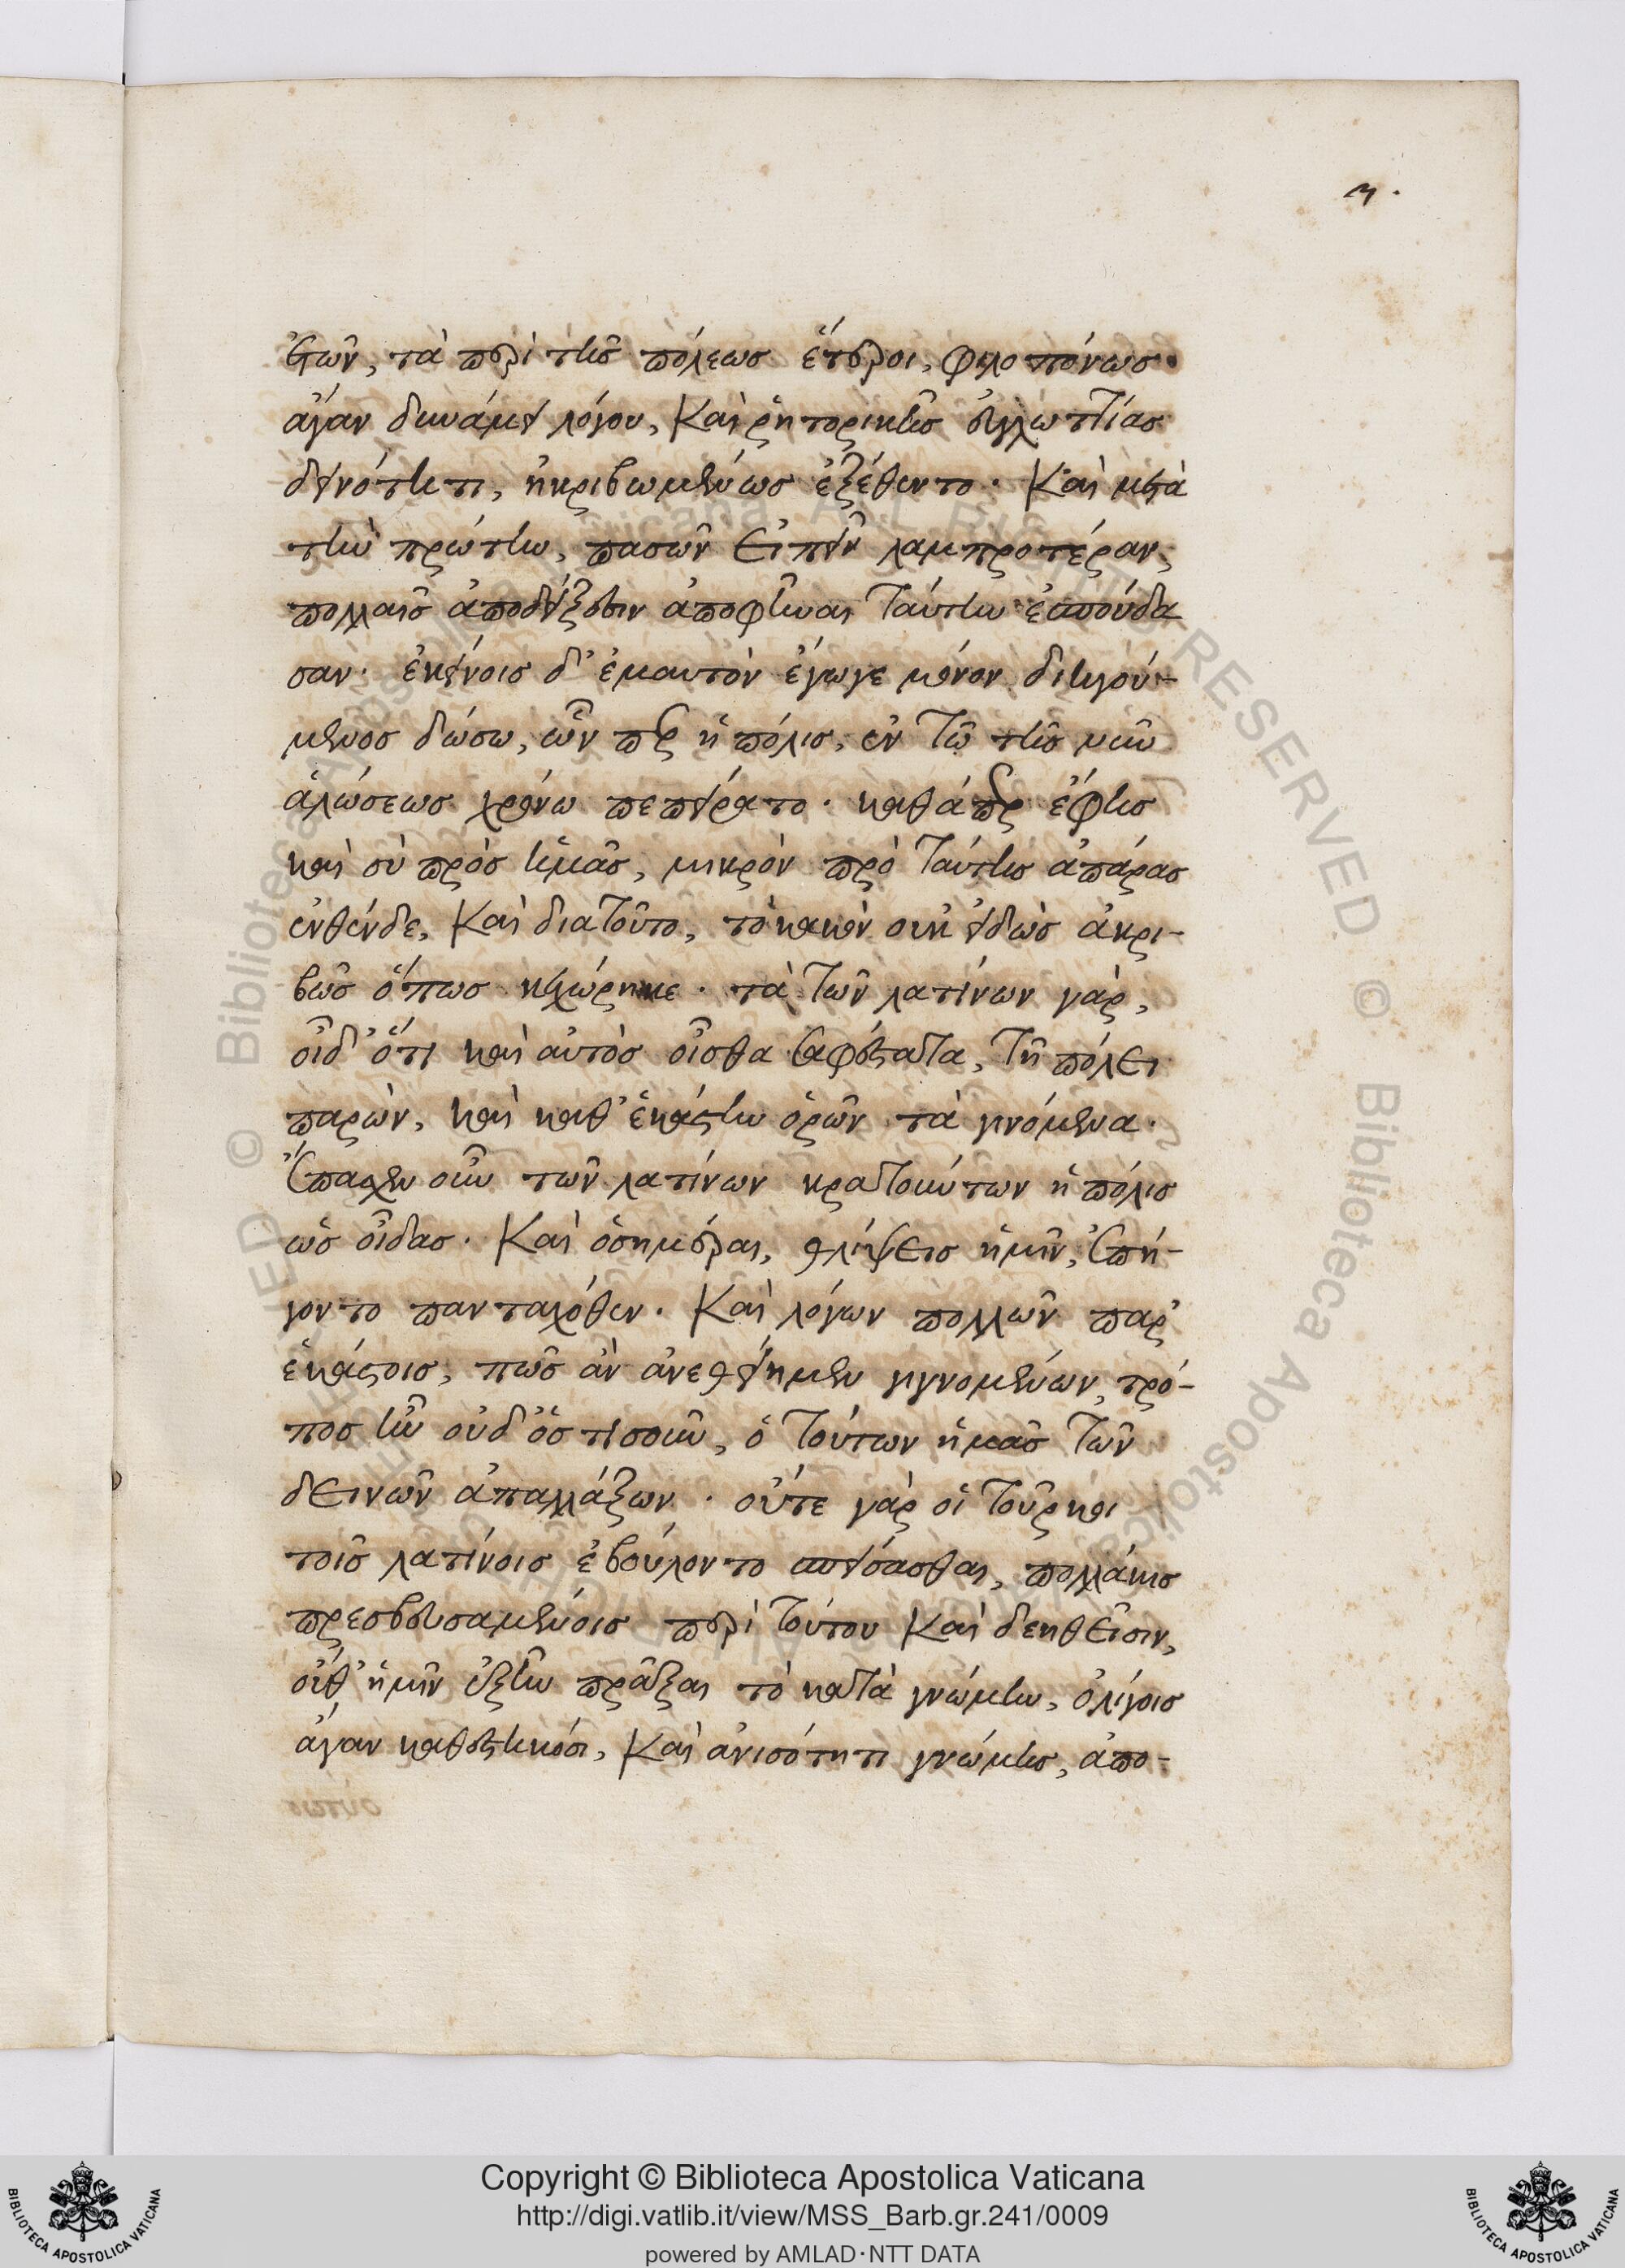 3.
ἐτῶν, τὰ περὶ τῆς πόλεως ἕτεροι, φιλοπόνως
ἄγαν δυνάμει λόγου, καὶ ῥητορικῆς εὐγλωττίας
δεινότητι, ἠκριβωμένως ἐξέθεντο. Καὶ μετὰ
τὴν πρώτην, πασῶν εἰπεῖν λαμπροτέραν,
πολλαῖς ἀποδείξεσιν ἀποφῆναι ταύτην ἐσπούδα
σαν. ἐκείνοις δ' ἐμαυτὸν ἔγωγε μόνον διηγού-
μενος δώσω, ὧν περ ἡ πόλις, ἐν τῷ τῆς νῦν
ἁλώσεως χρόνω πεπείρατο. καθάπερ ἔφης
καὶ σὺ πρὸς ἡμᾶς, μικρὸν πρὸ ταύτης ἀπάρας
ἐνθένδε, Καὶ διατοῦτο, τὸ κακὸν οὐκ εἰδὼς ἀκρι-
βῶς ὅπως κεχώρηκε. τὰ τῶν λατίνων γὰρ,
οἶδ' ὅτι καὶ αὐτὸς οἶσθα σαφέστατα, τῇ πόλει
παρὼν, καὶ καθ' ἑκάστην ὁρῶν τὰ γινόμενα.
Ἔπασχεν οὖν τῶν λατίνων κρατούντων ἡ πόλις
ὡς οἶδας. Καὶ ὁσημέραι, θλίψεις ἡμῖν, ἐπή-
γοντο πανταχόθεν. Καὶ λόγων πολλῶν παρ'
ἑκάστοις, πῶς ἂν ἀνεθείημεν γιγνομένων, τρό-
πος ἦν οὐδ' ὅστισοῦν, ὁ τούτων ἡμᾶς τῶν
δεινῶν ἀπαλλάξων. οὔτε γὰρ οἱ τοῦρκοι
τοῖς λατίνοις ἐβούλοντο σπείσασθαι, πολλάκις
πρεσβευσαμένοις περὶ τούτου καὶ δεηθεῖσιν,
οὔθ' ἡμῖν ἐξῆν πρᾶξαι τὸ κατὰ γνώμην, ὀλίγοις
ἄγαν καθεστηκόσι, Καὶ ἀνισότητι γνώμης, ἀπο-
Copyright © Biblioteca Apostolica Vaticana
http://digi.vatlib.it/view/MSS_Barb.gr.241/0009
powered by AMLAD·NTT DATA